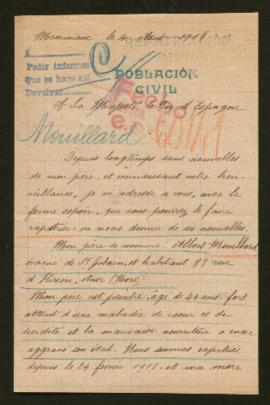 le 4 1918
Pedir informes
Que se haga así
Devolver
POBLACIÓN
CIVIL
A Sa Majesté le Roi d'Espagne
Mouillard
Depuis longtemps sans nouvelles
de mon père, et connaissant votre bien-
veillance, je m'adresse a vous, avec le
ferme espoir, que vous pourrez le faire
rapatrier ou nous donner de ses nouvelles.
Mon père se nomme Albert Mouillard
évacué de St Gobain, et habitant 89 rue
d'Hirson, Anor (Nord)
Mon père est peintre, âgé de 42 ans. fort
atteint d'une maladie de coeur et de
et la mauvaise nourriture a encore
aggravé son état. Nous sommes rapatriés
depuis le 24 février 1918. et ma mère